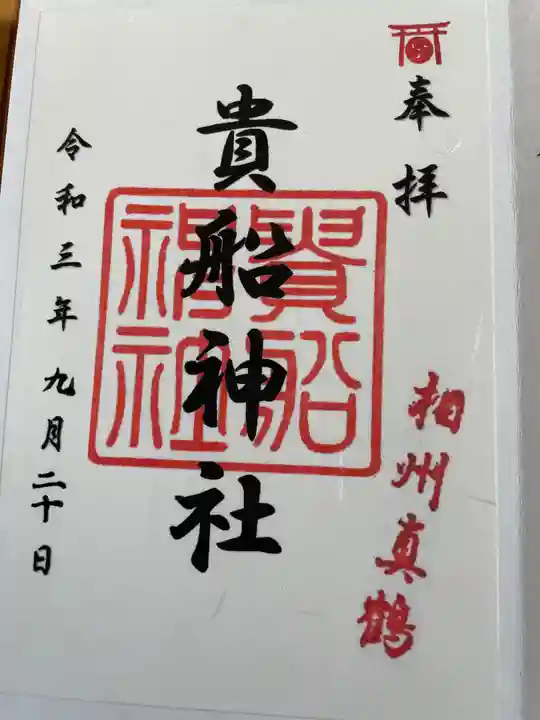 奉拝
相州真鶴
貴船神社
貴船
神社
令和三年九月二十日